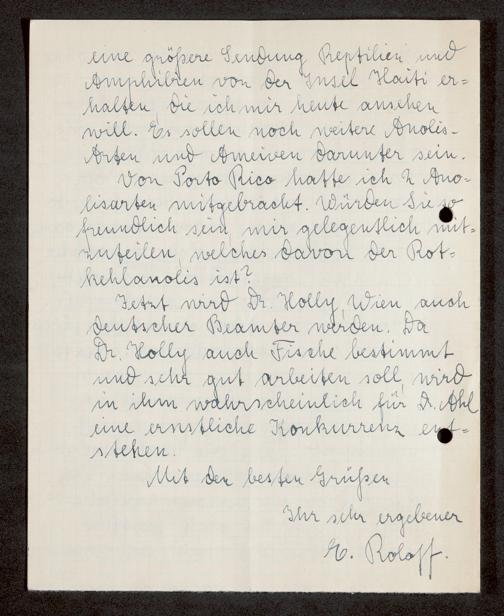 eine größere Sendung Reptilien und
Amphibien von der Insel Haiti er=
halten, die ich mir heute ansehen
will. Es sollen noch weitere Anolis-
Arten und Ameiven darunter sein.
Von Porto Rico hatte ich 2 Ano-
lisarten mitgebracht. Würden Sie so
freundlich sein, mir gelegentlich mit=
zuteilen, welches davon der Rot-
kehlanolis ist?
Jetzt wird Dr. Holly, Wien auch
deutscher Beamter werden. Da
Dr. Holly auch Fische bestimmt
und sehr gut arbeiten soll, wird
in ihm wahrscheinlich für Dr. Ahl
eine ernstliche Konkurrenz ent=
stehen.
Mit den besten Grüßen
Ihr sehr ergebener
E. Roloff.